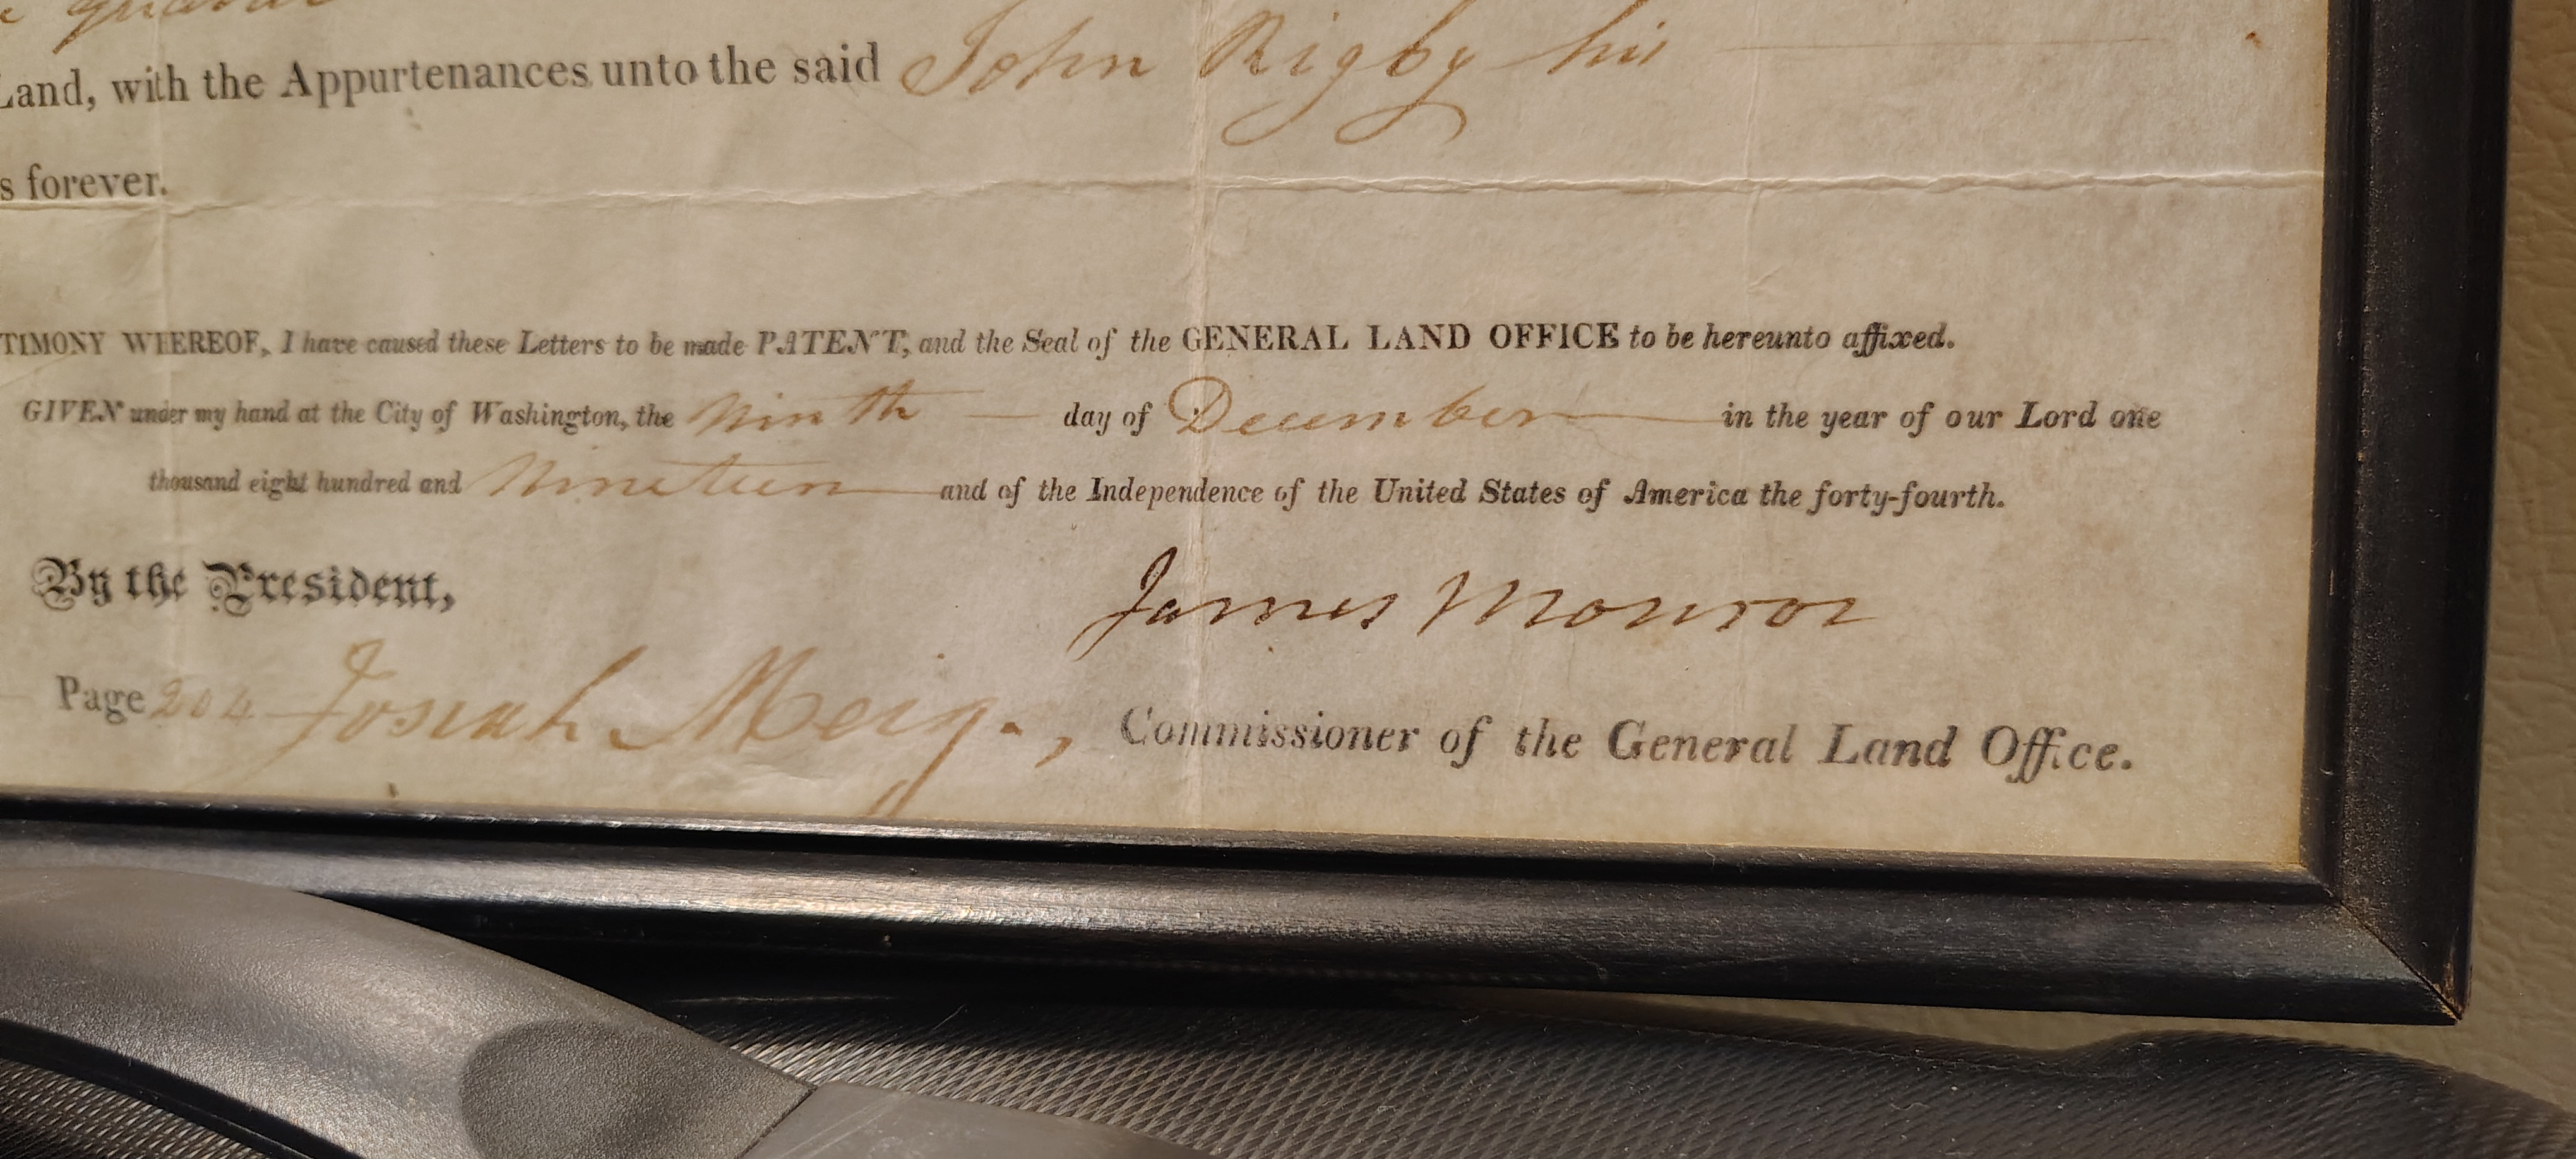 quarter
Land, with the Appurtenances unto the said John Rigby his
s forever.
TIMONY WHEREOF, I have caused these Letters to be made PATENT, and the Seal of the GENERAL LAND OFFICE to be hereunto affixed.
GIVEN under my hand at the City of Washington, the Ninth day of December in the year of our Lord one
thousand eight hundred and Nineteen and of the Independence of the United States of America the forty-fourth.
By the President,
James Monroe
Page 204 Josiah Meigs, Commissioner of the General Land Office.